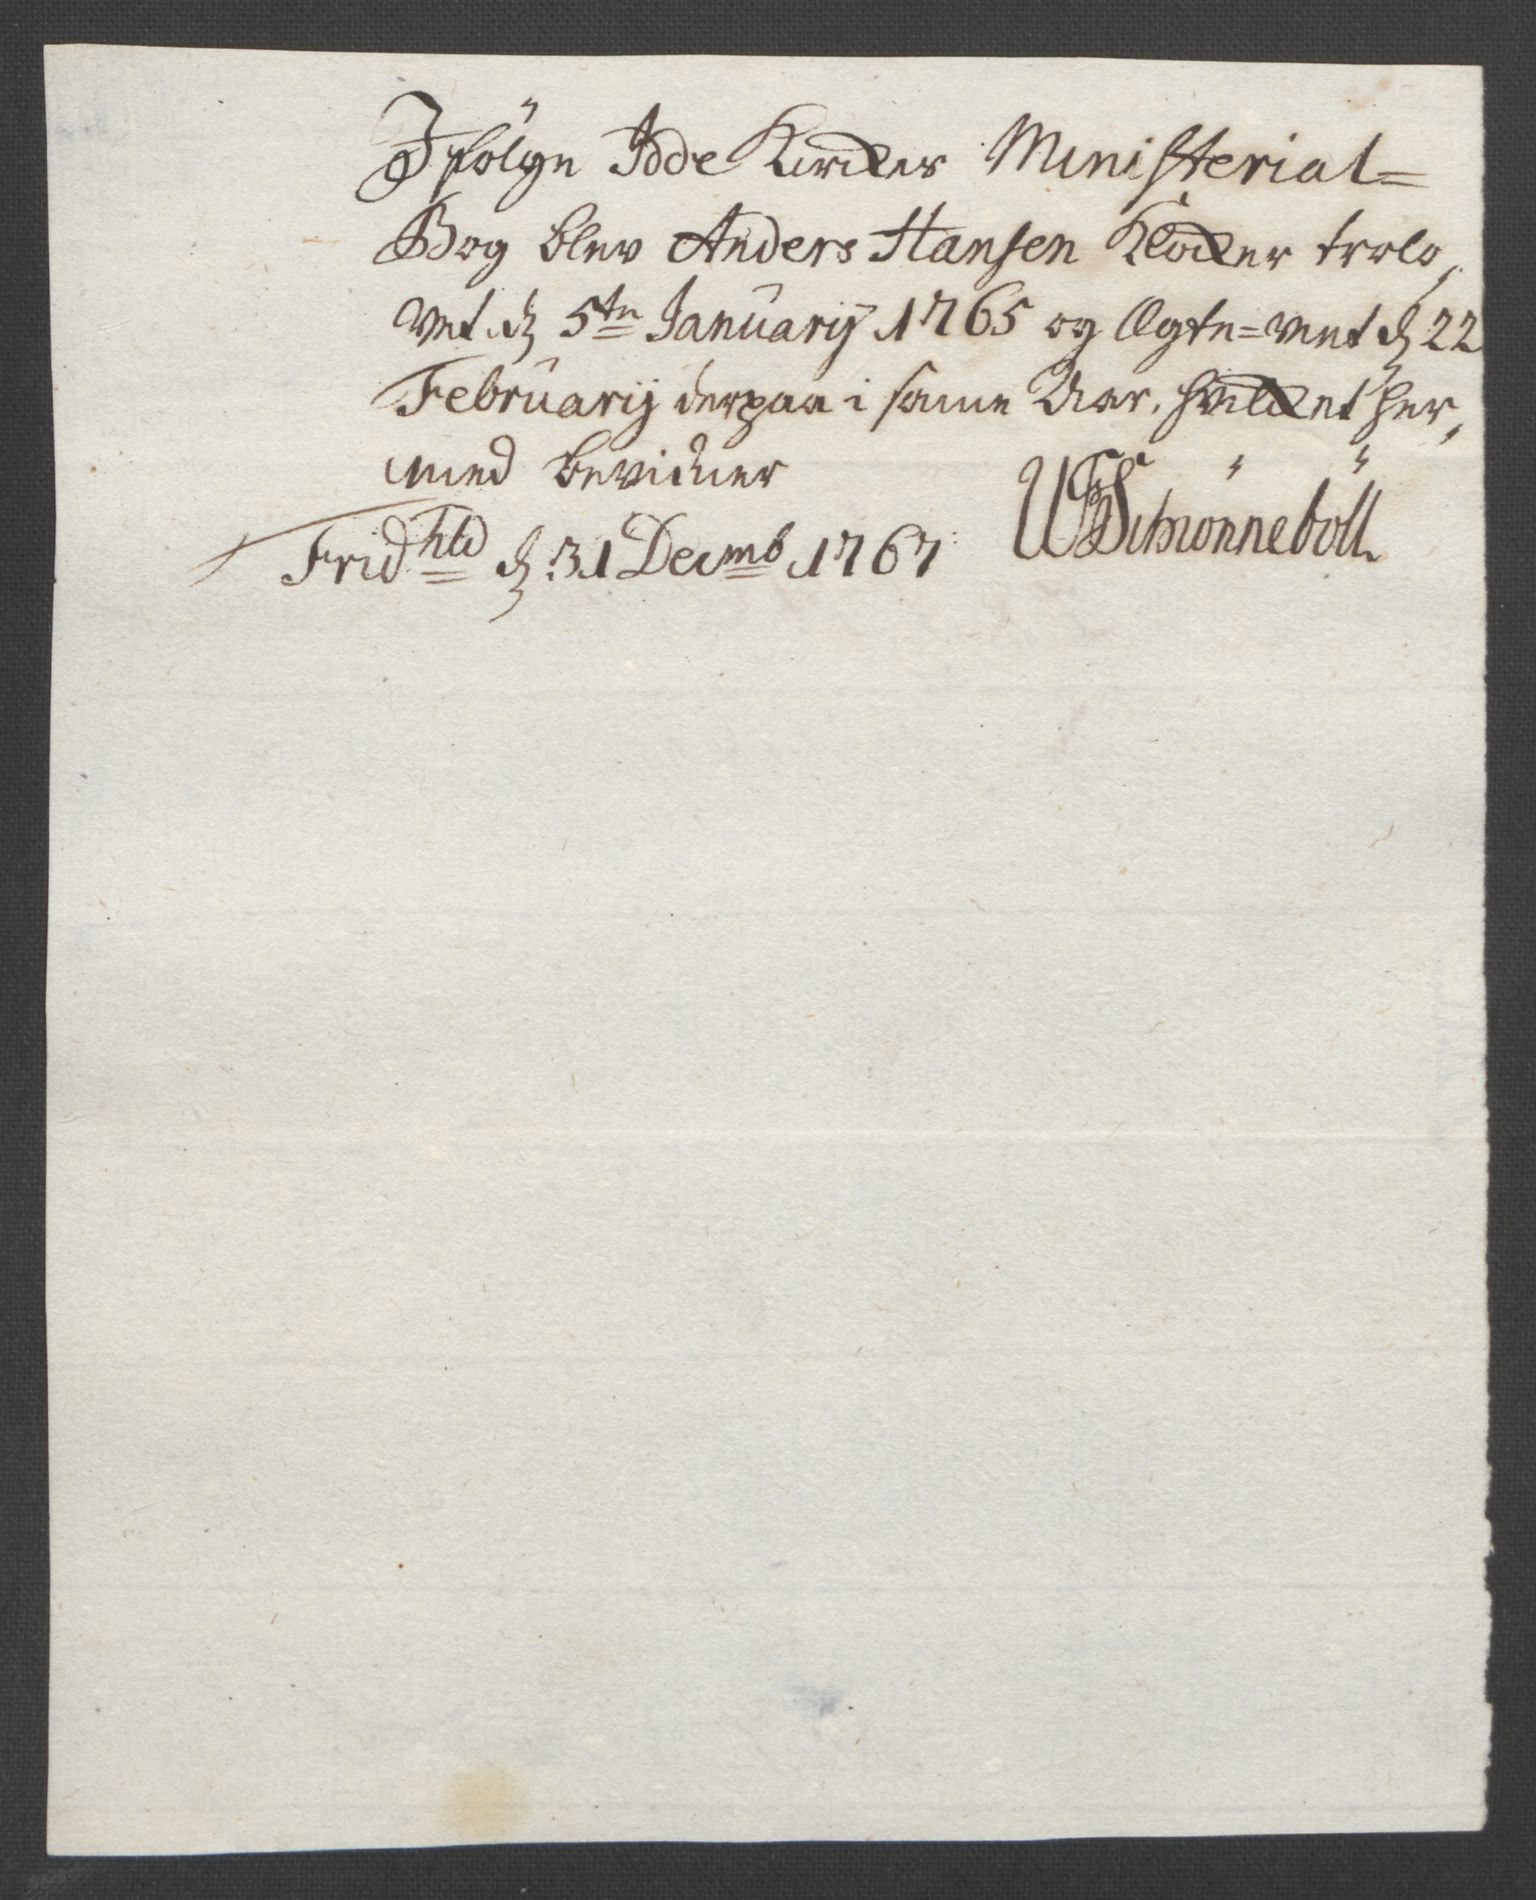 Ifølge Idde Kirckes Ministerial=
Bog blev Anders Hansen Klocker trolo,
vet d 5te Januarij 1765 og Ægte=viet d 22
Februarij derpaa i same Aar. hvilcket her,
med bevidner
Fridhld d 31 Decmb 1767 WFSchrönneboll